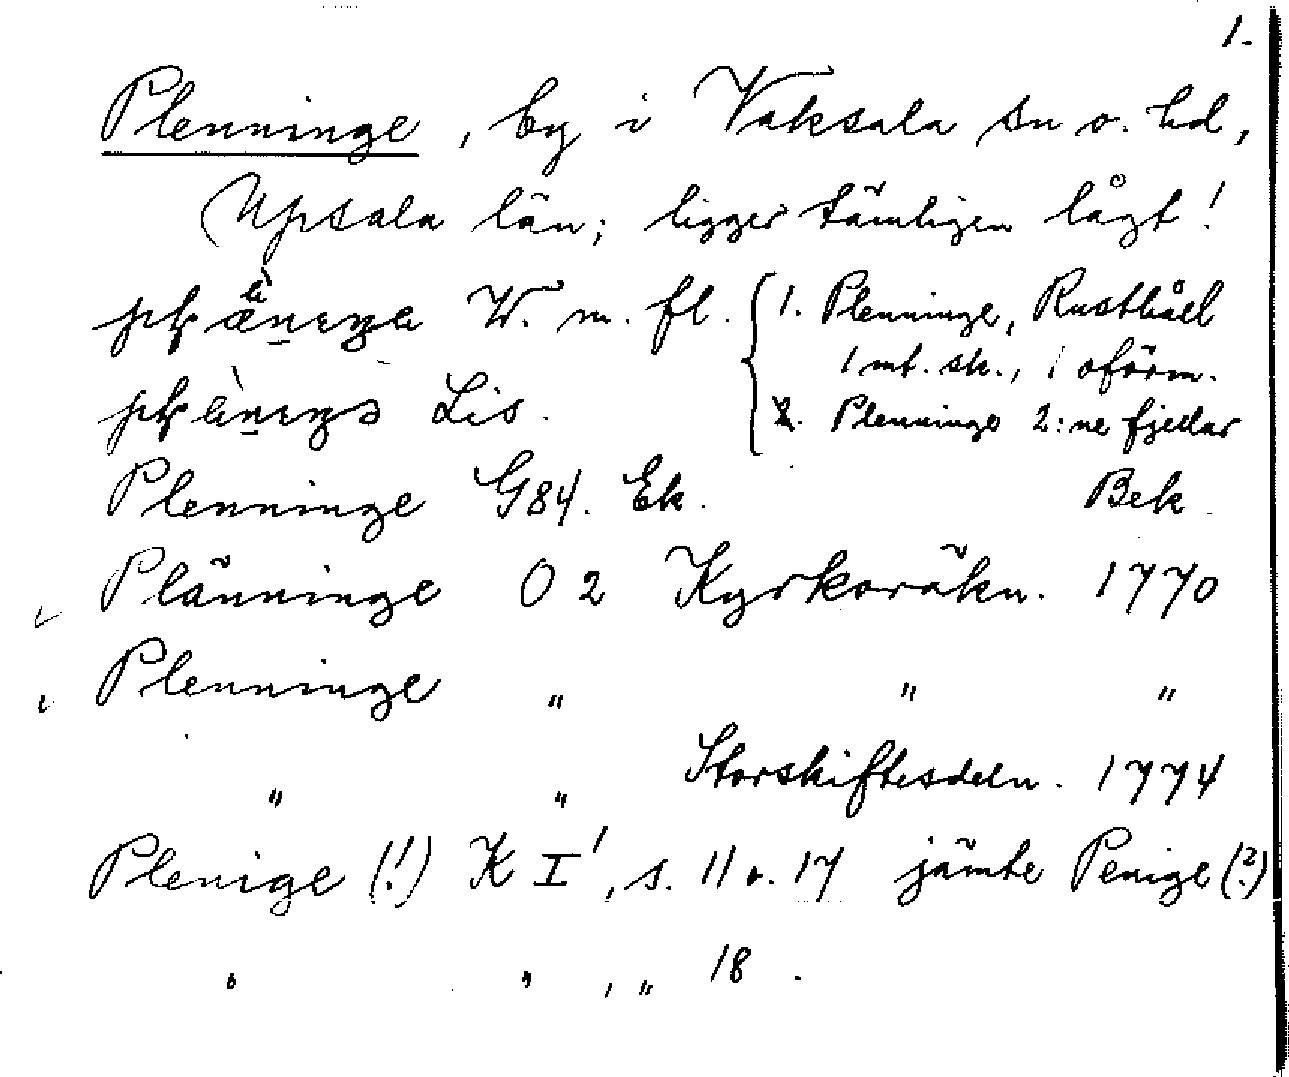 1.
Plenninge, by i Vaksala sn o. hd,
Upsala län; ligger tämligen lågt!
W. m. fl. { 1. Plenninge, Rusthåll
1 mt. sk., 1 oförm.
Lis. 2. Plenninge 2:ne fjedlar
Plenninge G84. Ek. Bek.
Plänninge O 2 Kyrkoräkn. 1770
Plenninge " " "
" " Storskiftesdeln. 1774
Plenige (!) K I', s. 11 o. 17 jämte Penige (?)
" " , " 18.